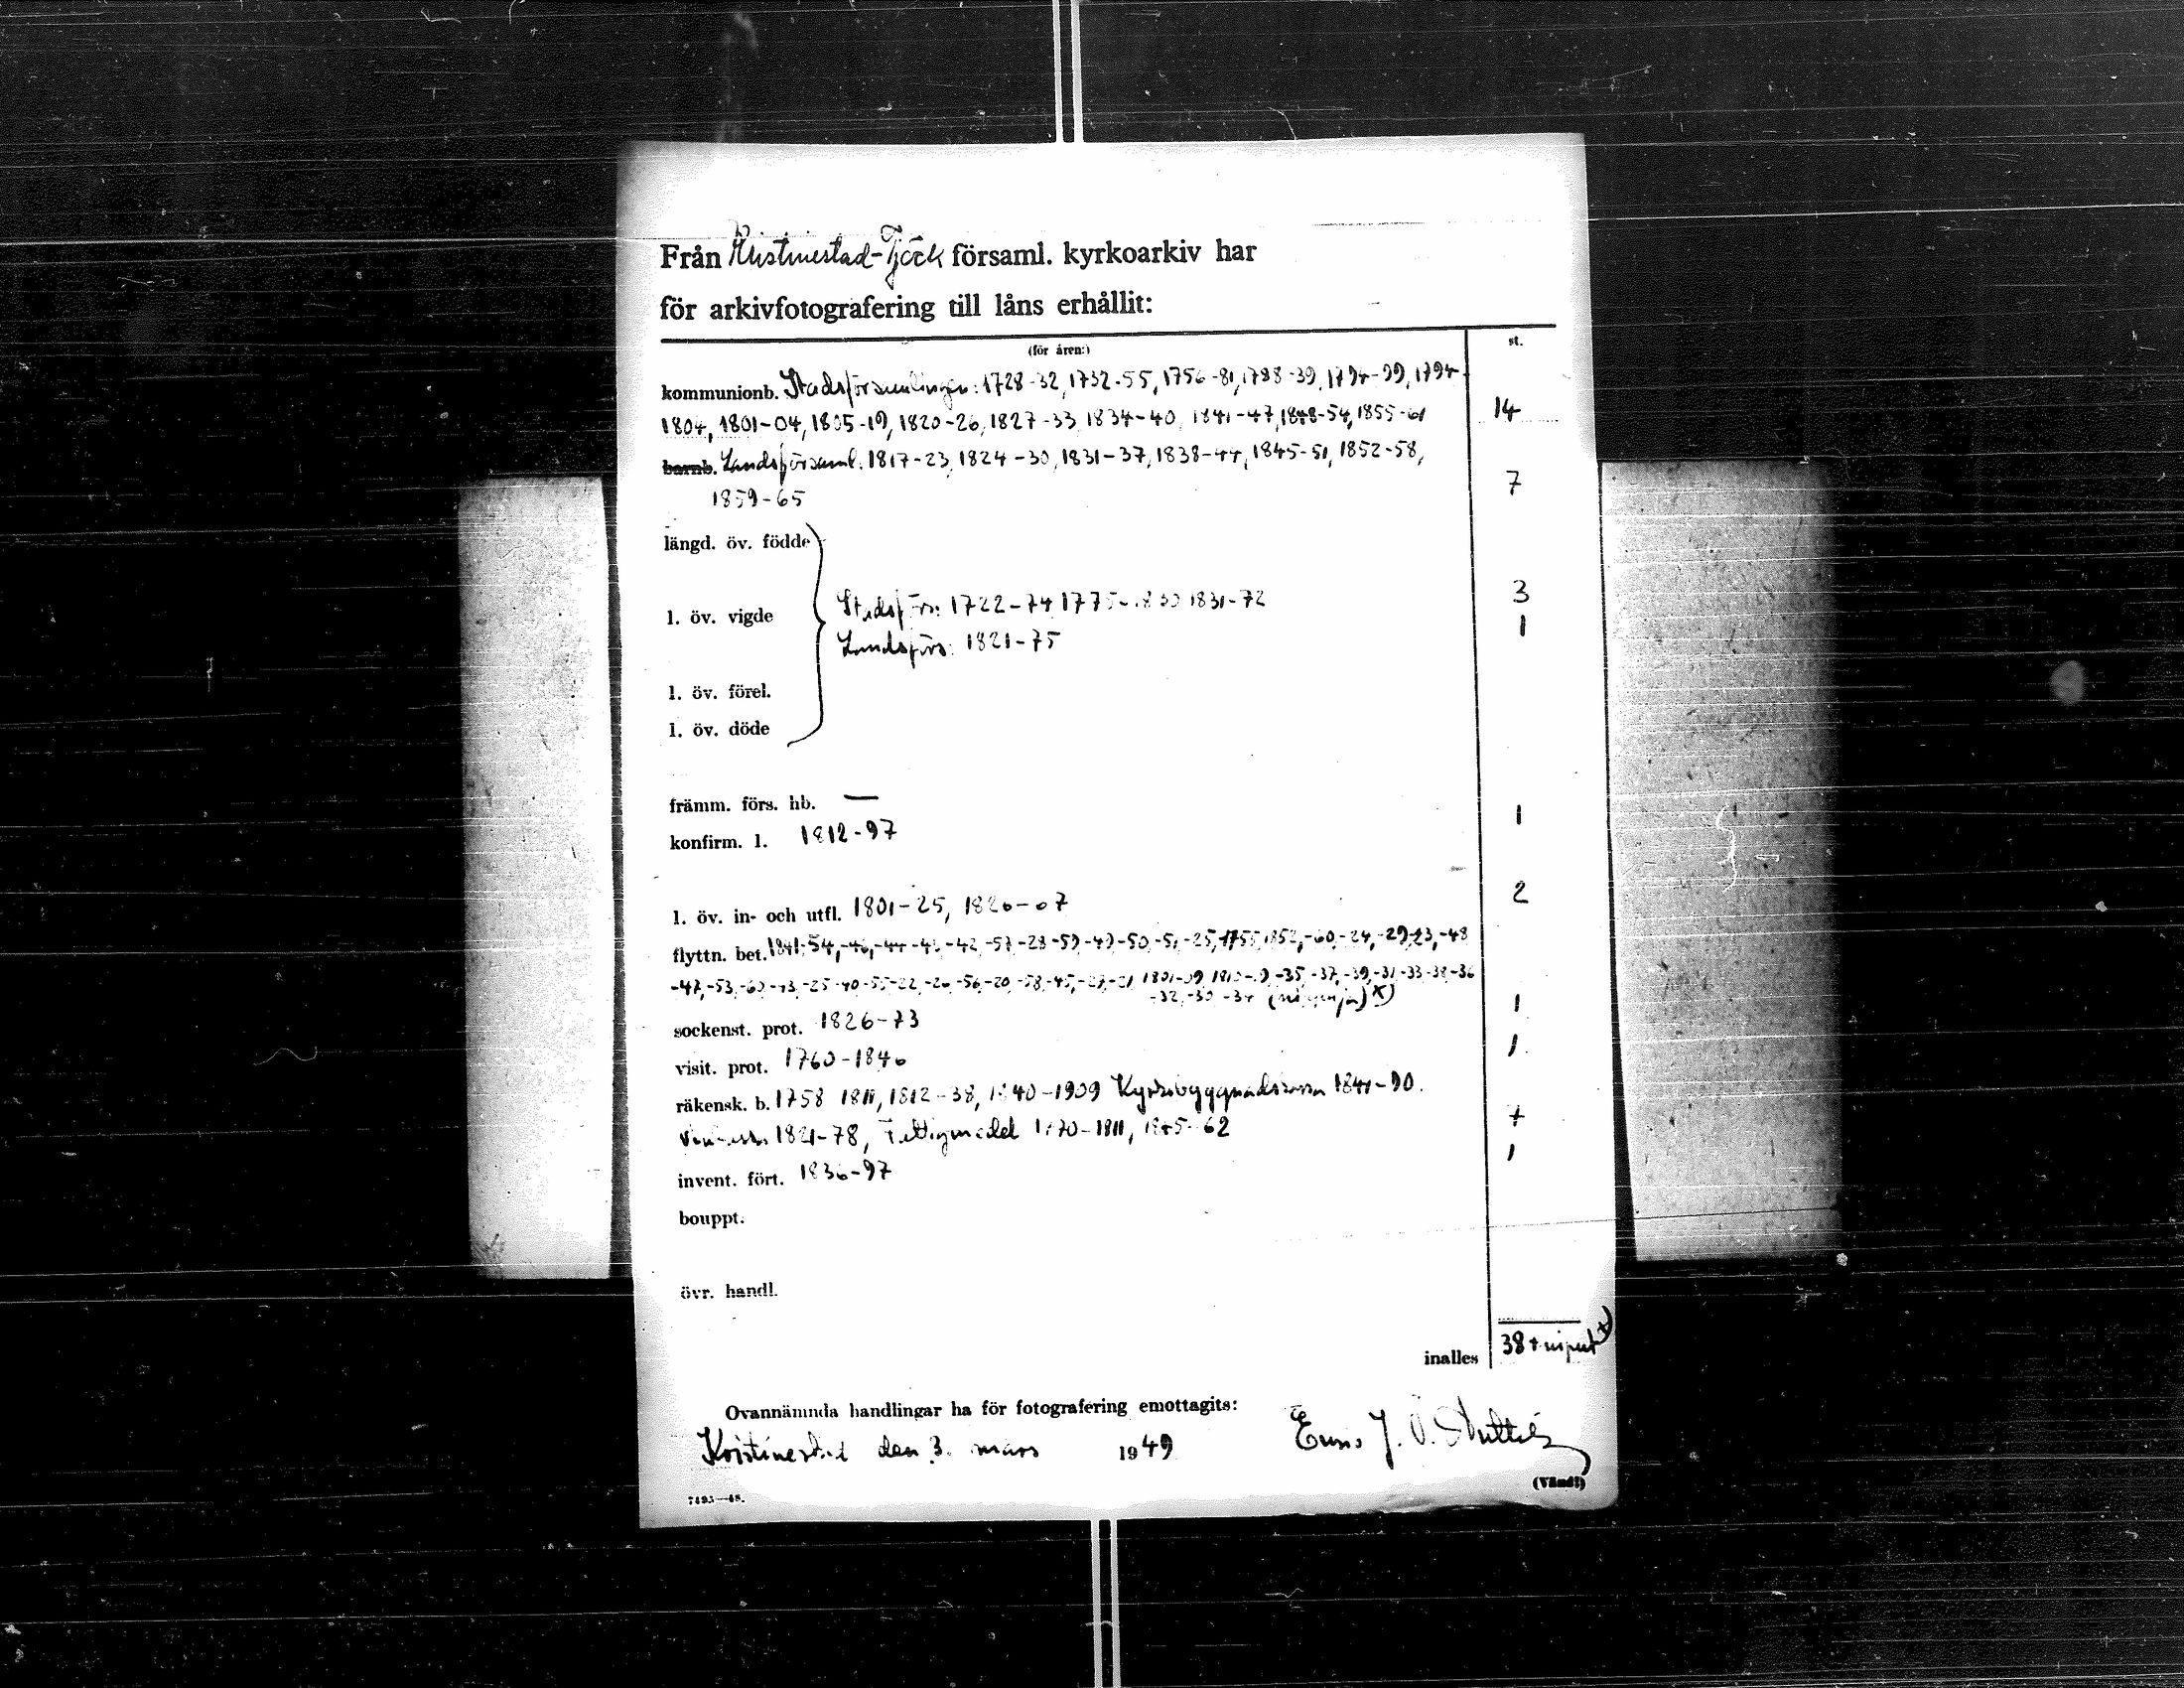 Från Kristinestad-Tjöck församl. kyrkoarkiv har
för arkivfotografering till låns erhållit:
(för åren:) st.
kommunionb. Stadsförsamlingen: 1728-32, 1732-55, 1756-81, 1788-39, 1794-99, 1794-
1804, 1801-04, 1805-19, 1820-26, 1827-33, 1834-40, 1841-47, 1848-54, 1855-61 14
barnb. Landsförsaml. 1817-23, 1824-30, 1831-37, 1838-44, 1845-51, 1852-58,
1859-65 7
längd. öv. födde
Stadsförs: 1722-74 1775-1830 1831-72 3
l. öv. vigde
Landsförs: 1821-75 1
l. öv. förel.
l. öv. döde
främm. förs. hb. —
konfirm. l. 1812-97 1
l. öv. in- och utfl. 1801-25, 1826-07 2
flyttn. bet. 1841, -54, -46, -44 -42, -57, -28 -59, -49, -50, -51, -25, 1755, 1852, -60, -24, -29, -23, -48
-47, -53, -25 -40 -55 -22, -26, -56, -20, -58, -45, 1801-09, -35, -37, -39, -31 -33 -38 -36
-32, -30 -34
sockenst. prot. 1826-73 1
visit. prot. 1760-1846 1
räkensk. b. 1758 1811, 1812-38, 1840-1909 Kyrkobyggnadskassa 1841-90.
1821-78, Fattigmedel 1770-1811, 1845-62 7
invent. fört. 1836-97 1
bouppt.
övr. handl.
inalles 38 +
Ovannämnda handlingar ha för fotografering emottagits:
Kristinestad den 3. mars 1949 J. O.
(Vänd!)
7493—48.